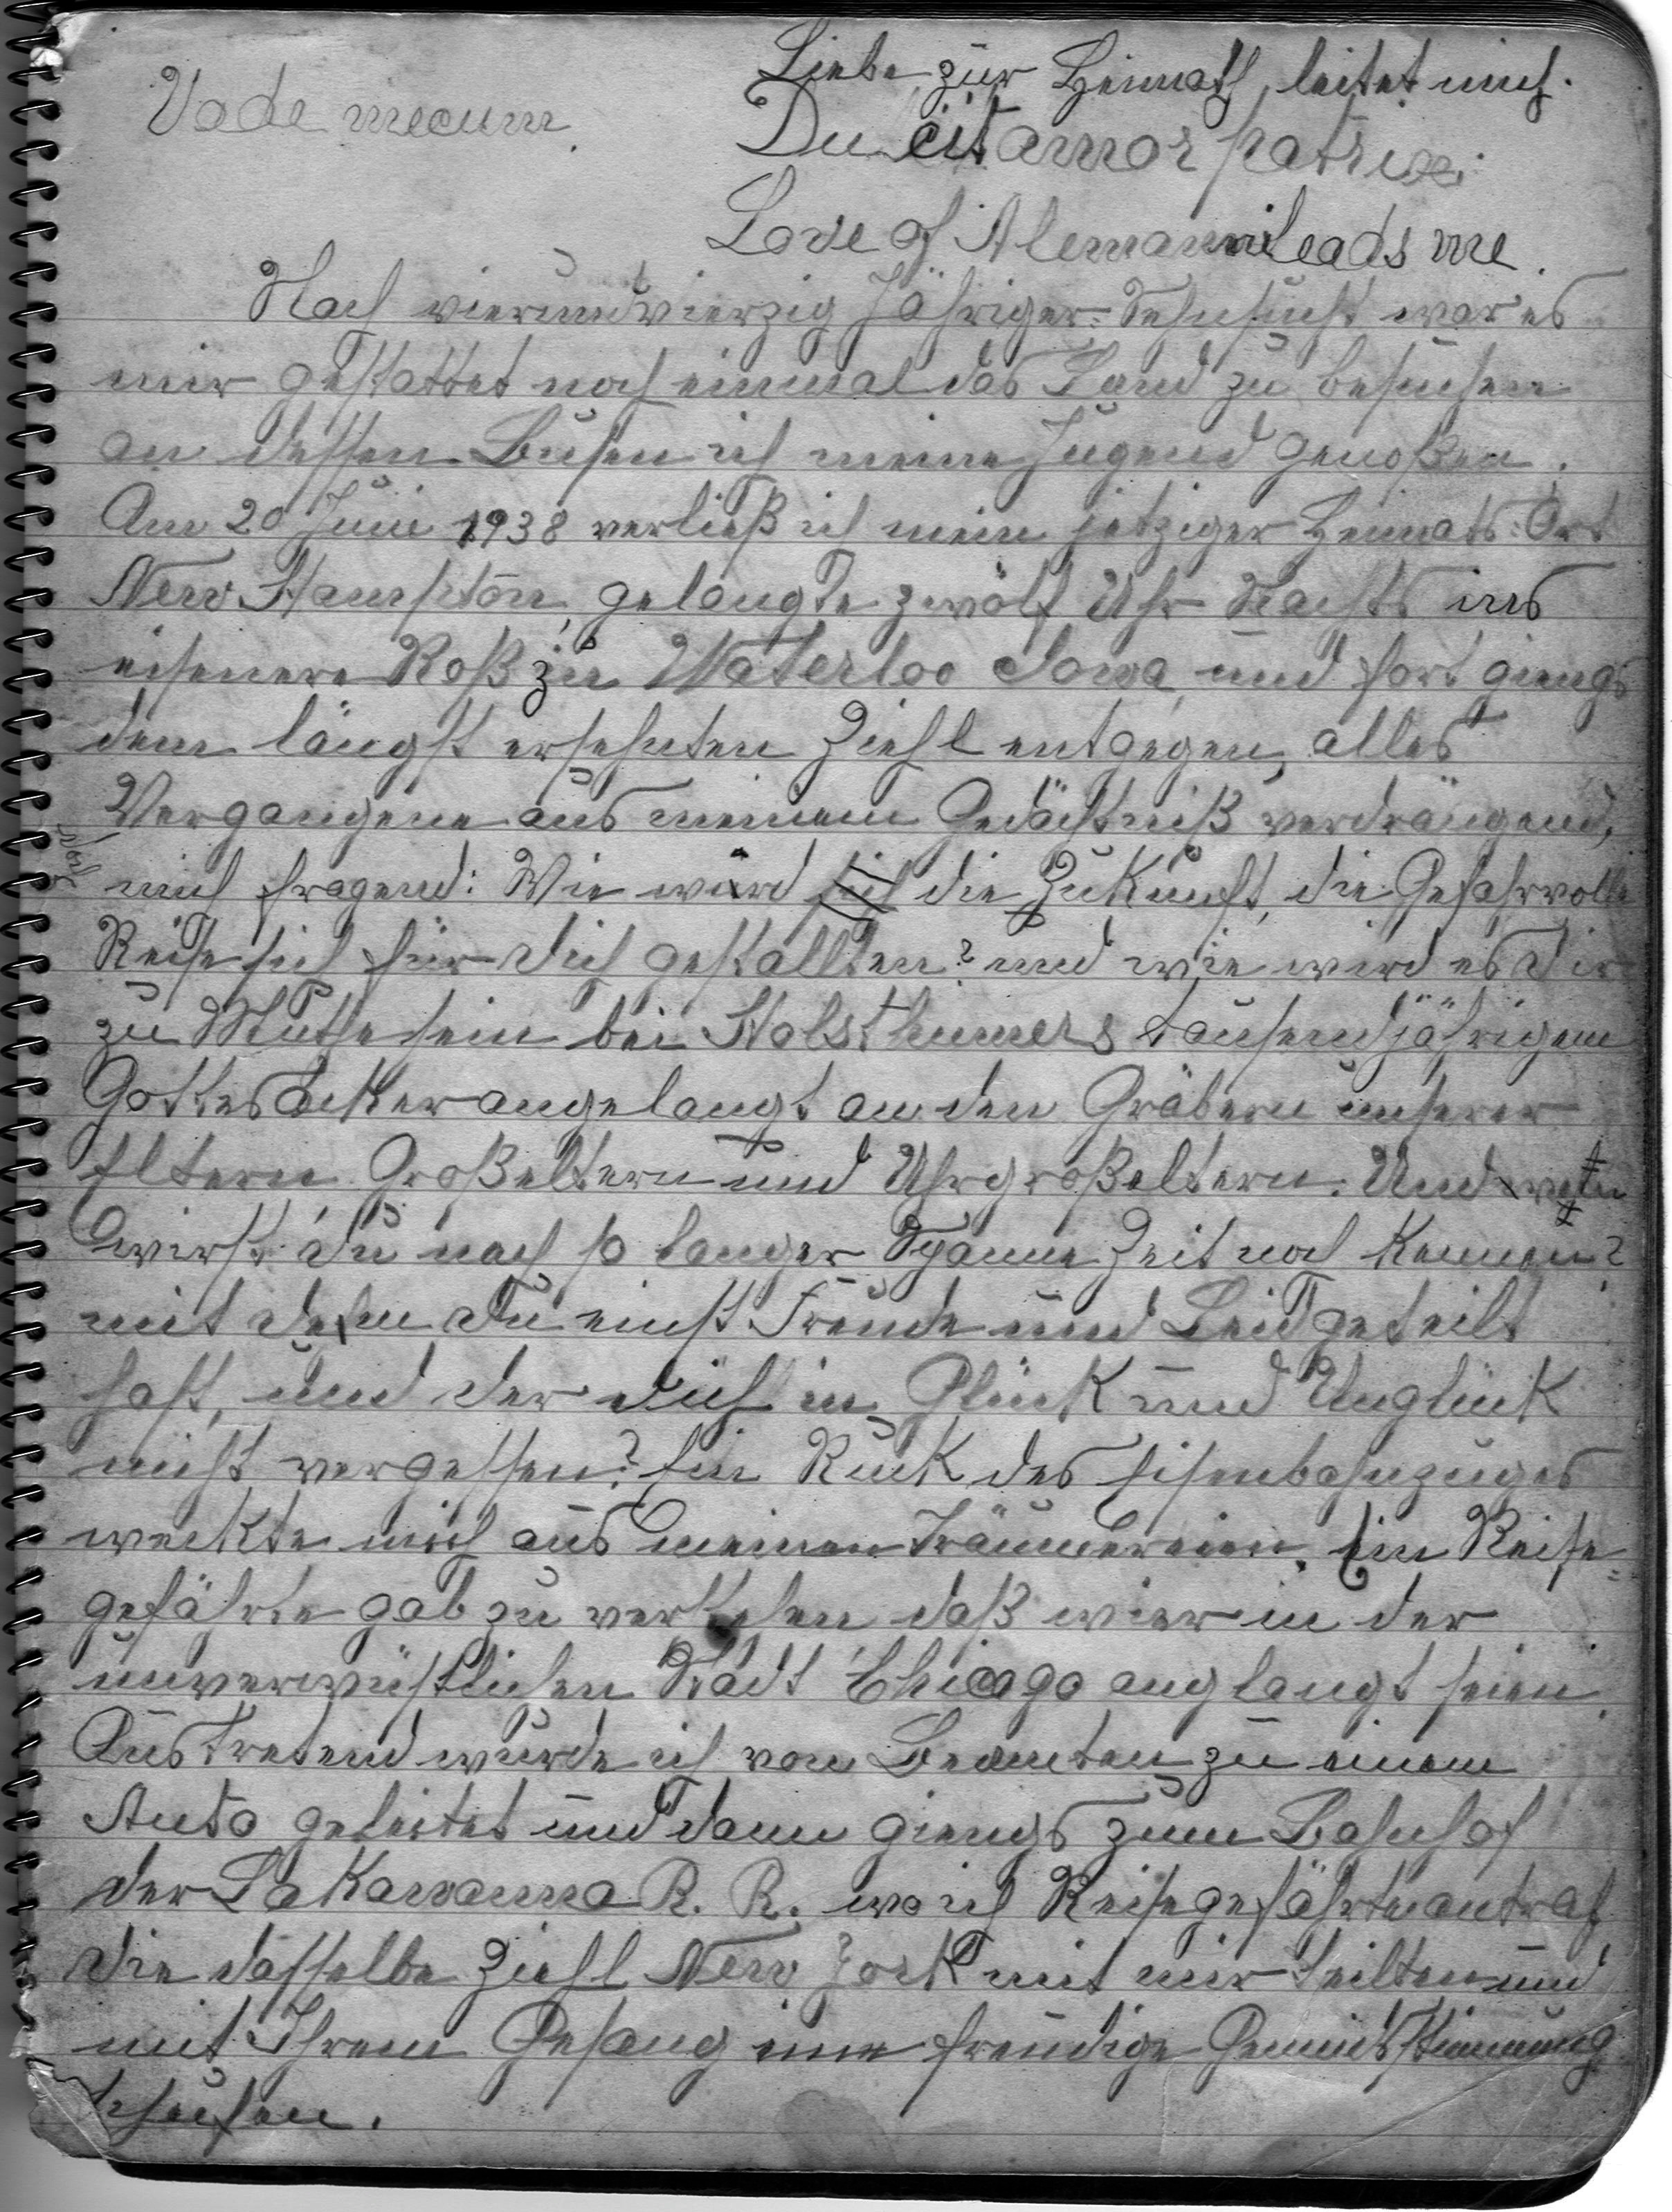 Vade mecum.
Liebe zur Heimath leitet mich.
Ducit amor patriæ.
Love of Alemanni leads me.
Nach vierundvierzig Jähriger Sehnsucht war es
mir gestattet noch einmal das Land zu besuchen
an dessen Busen ich meine Jugend genoßen.
Am 20 Juni 1938 verließ ich mein jetziger Heimats-Ort
New Hampton, gelangte zwölf Uhr Nachts ins
eisenere Roß zu Waterloo Iowa, und fort giengs
dem längst ersehnten Ziehl entgegen, alles
Vergangene aus meinem Gedächtniß verdrängend,
mich fragend: Wie wird sich die Zukunft, die Gefahrvolle
Reise sich für dich gestallten? und wie wird es dir
zu Muthe sein bei Holsthumers tausendjährigem
Gottesacker angelangt an den Gräbern unserer
Eltern Großeltern und Uhrgroßeltern. Und wen
wirst du nach so langer Spanne Zeit noch Kennen?
mit dem du einst Freude und Leid geteilt
hast, und der dich in Glück und Unglück
nicht vergessen? Ein Ruck des Eisenbahnzuges
weckte mich aus meinen Träumereien. Ein Reise-
gefährte gab zu verstehen daß wier in der
unverwüstlichen Stadt Chicago anglangt seien.
Austretend wurde ich von Beamten zu einem
Auto geleitet und dann giengs zum Bahnhof
der Lakawanna R. R. wo ich Reisegefährten antraf
die dasselbe Ziehl New York mit mir teilten und
mit Ihrem Gesang eine freudige Gemütsstimmung
schufen.